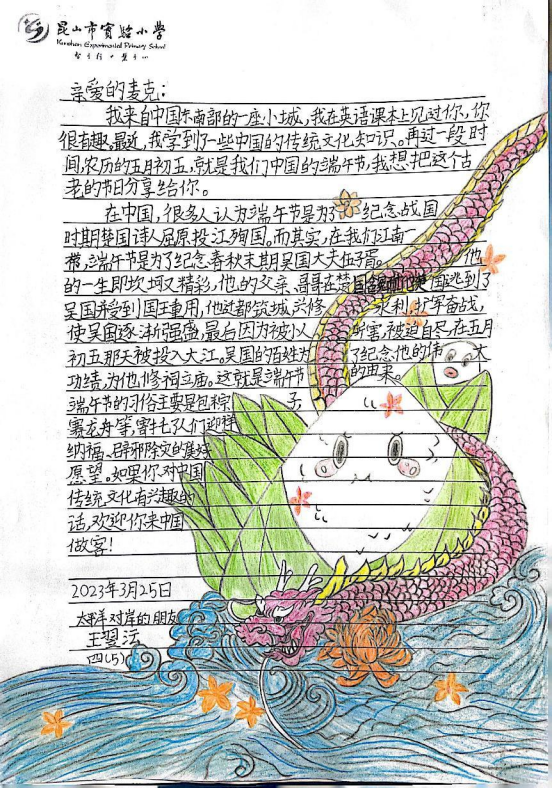 昆山市实验小学
Kunshan Experimental Primary School
亲爱的麦克：
我来自中国东南部的一座小城，我在英语课本上见过你，你
很有趣。最近，我学到了一些中国的传统文化知识。再过一段时
间，农历的五月初五，就是我们中国的端午节，我想把这个古
老的节日分享给你。
在中国，很多人认为端午节是为了纪念战国
时期楚国诗人屈原投江殉国。而其实，在我们江南一
带，端午节是为了纪念春秋末期吴国大夫伍子胥。他
的一生即坎坷又精彩，他的父亲、哥哥在楚国 国逃到了
吴国并受到国王重用，他迁都筑城，兴修水利，扩军奋战，
使吴国逐渐强盛，最后因为被小人所害，被迫自尽，在五月
初五那天被投入大江。吴国的百姓为了纪念他的伟大
功绩，为他修祠立庙。这就是端午节的由来。
端午节的习俗主要是包粽子，
赛龙舟等，寄托了人们迎祥
纳福、辟邪除灾的美好
愿望。如果你对中国
传统文化有兴趣的
话，欢迎你来中国
做客！
2023年3月25日
太平洋对岸的朋友
王翌
四(5)